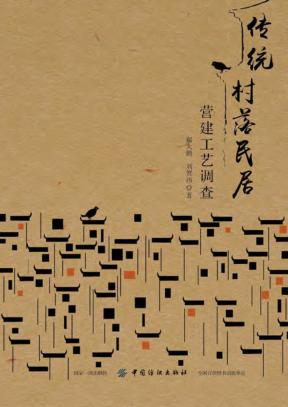 传统村落民居
营建工艺调查
著
中国纺织出版社
国家一级出版社
全国百佳图书出版单位